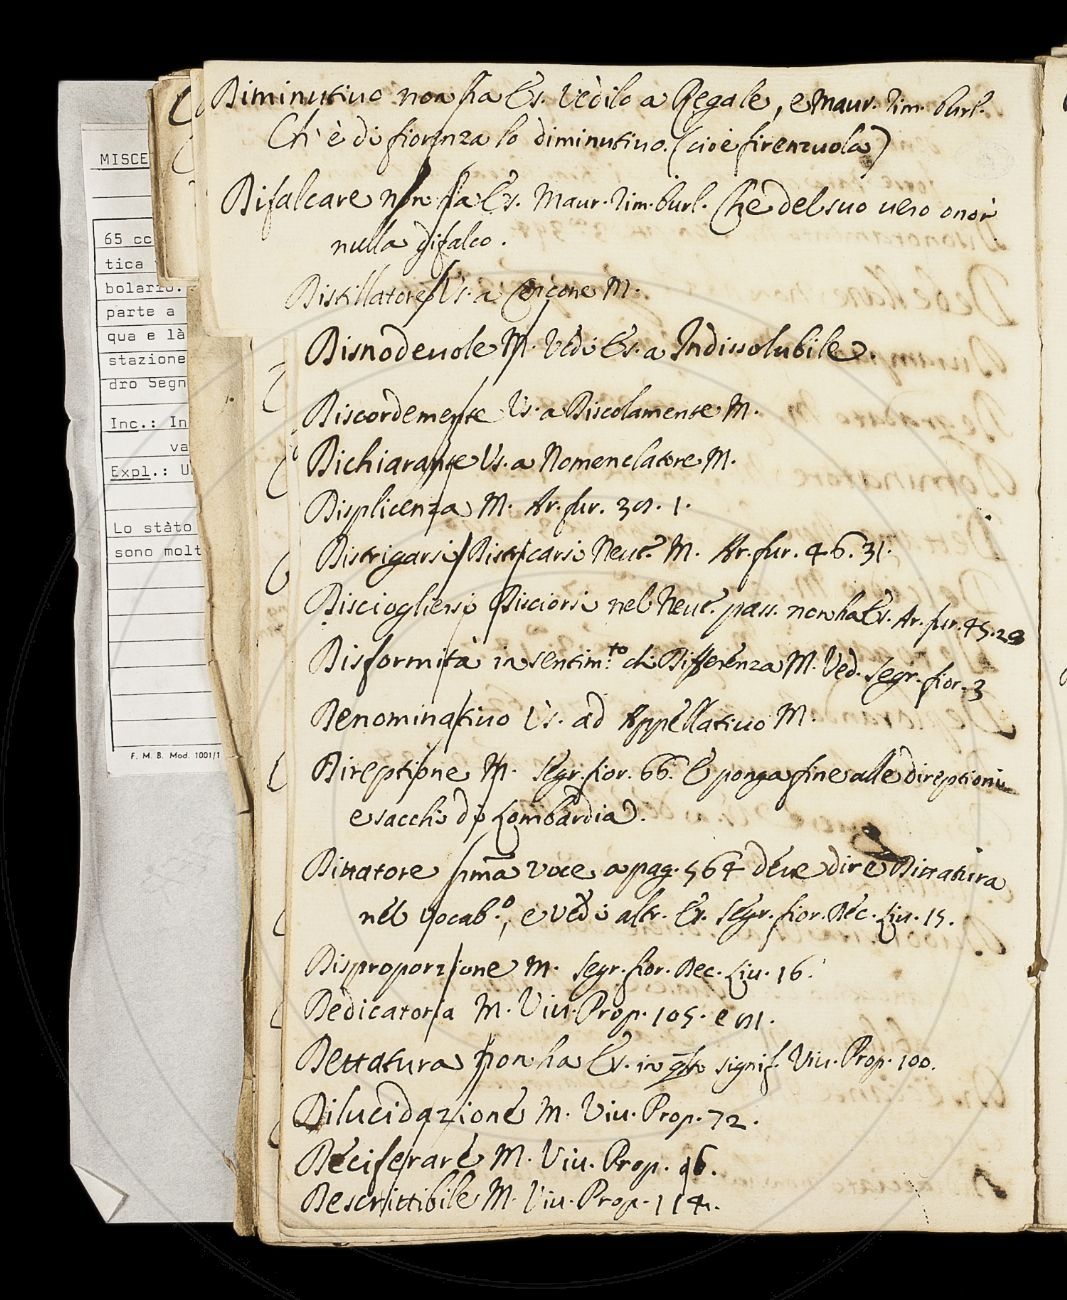 Diminutivo non ha Es. Vedilo a Regale, e Maur. rim. burl.
Ch'è di fiorenza lo diminutivo. (cioè firenzuola)
Difalcare non ha Es. Maur. rim. burl. Che del suo vero onor
nulla difalco.
Distillatore Es. a M.
Disnodevole M. Vedi Es. a Indissolubile.
Discordemente Es. a Discolamente M.
Dichiarante Es. a Nomenclatore M.
Displicenza M. Ar. fur. 30. 1.
Distrigarsi, Districarsi Neut.º M. Ar. fur. 46. 31.
Disciogliersi Disciorsi nel Neut. pass. non ha Es. Ar. fur. 45. 28
Disformità in sentim.to di Differenza M. Ved. Segr. fior. 3
Denominativo Es. ad Appellativo M.
Direptione M. Segr. fior. 66. E ponga fine alle direptioni
e sacchi di Lombardia.
Dittatore voce a pag. 564 deve dire Dittatura
nel vocab.º, e vedi altr. Es. Segr. fior. Dec. Liv. 15.
Disproporzione M. Segr. fior. Dec. Liv. 16.
Dedicatoria M. Viv. Prop. 105. e 111.
Dettatura non ha Es. in qsto signif. Viv. Prop. 100.
Dilucidazione M. Viv. Prop. 72.
Deciferare M. Viv. Prop. 96.
Descrittibile M. Viv. Prop. 114.
MISCE
65 cc
tica
bolario.
parte a
qua e là
stazione
dro Segn
Inc.: In
va
Expl.: U
Lo stato
sono molt
F. M. B. Mod. 1001/1